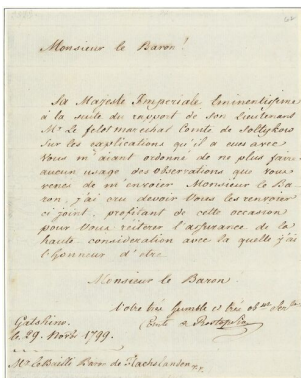 Monsieur le Baron!
Sa Majesté Imperiale Eminentissime
à la suite du rapport de son Lieutenant
Mr. le feldmarechal Comte de Soltykow
sur les explications qu'il a eues avec
Vous m'aiant ordonné de ne plus faire
aucun usage des observations que vous
venez de m'envoier Monsieur le Ba
ron, j'ai cru devoir Vous les renvoier
ci joint, profitant de cette occasion
pour Vous reiterer l'assurance de la
haute consideration avec la quelle j'ai
l'honneur d'etre
Monsieur le Baron
Votre très humble et très
Comte de Rostopsin
Gatshina
le 29. Novbr 1799.
Mr. le Bailli Baron de Flachslanden